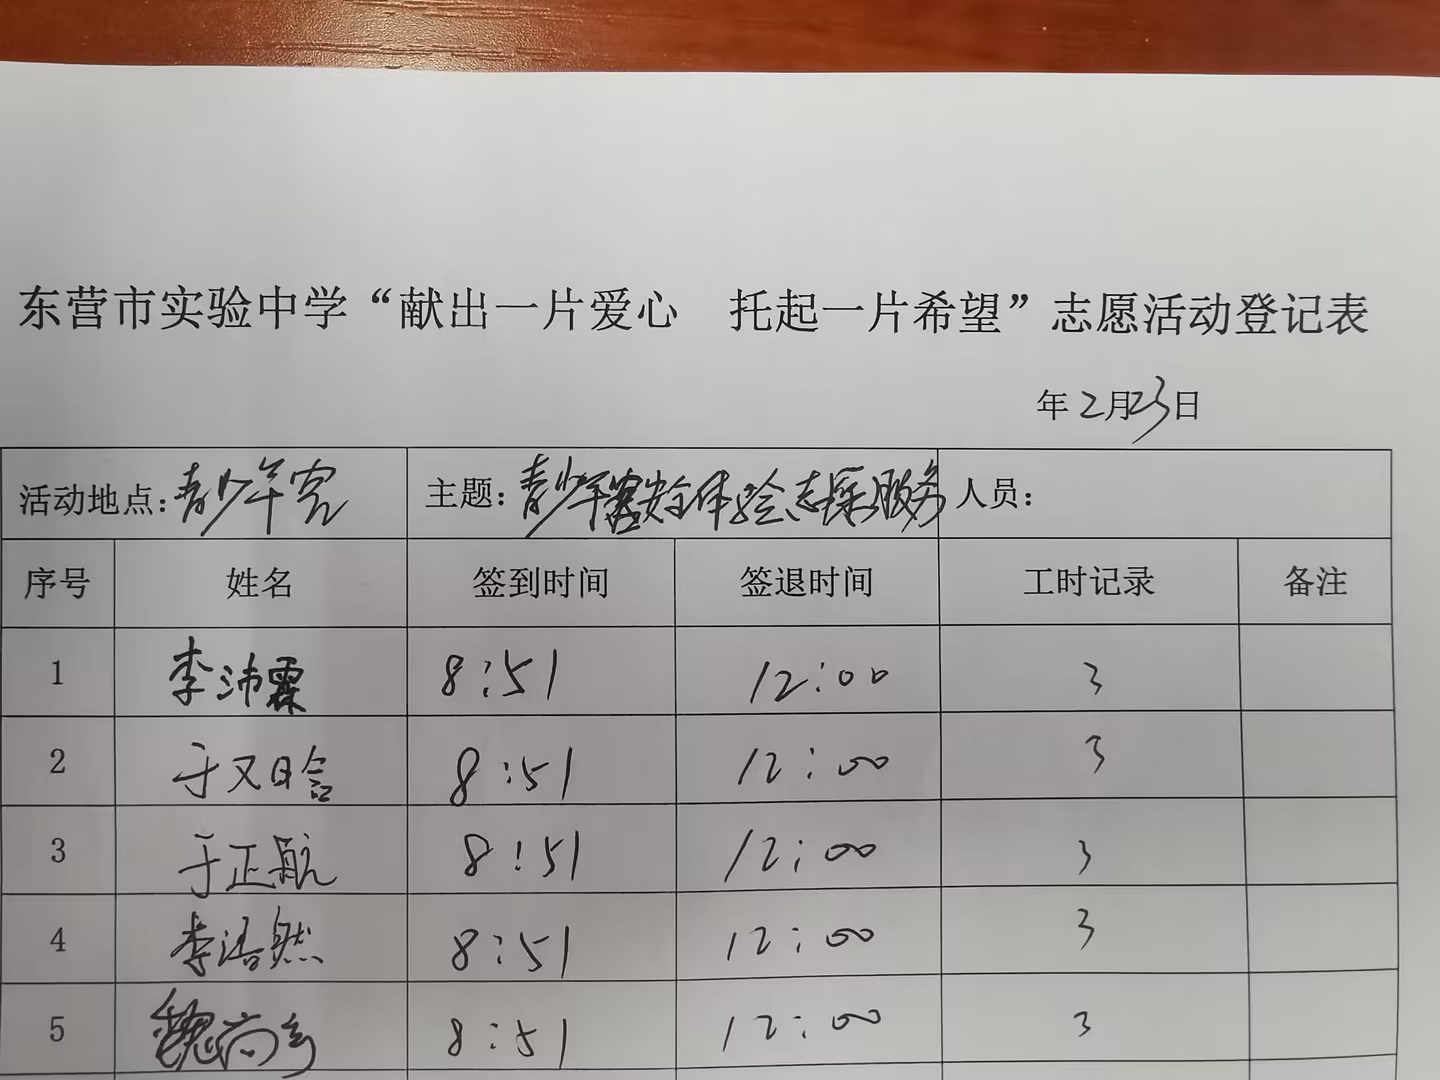 东营市实验中学“献出一片爱心 托起一片希望”志愿活动登记表
年2月23日
活动地点：青少年宫 主题：青少年宫安全体验志愿服务 人员：
序号 姓名 签到时间 签退时间 工时记录 备注
1 李沛霖 8:51 12:00 3
2 于又日含 8:51 12:00 3
3 于正航 8:51 12:00 3
4 李浩然 8:51 12:00 3
5 魏尚 8:51 12:00 3